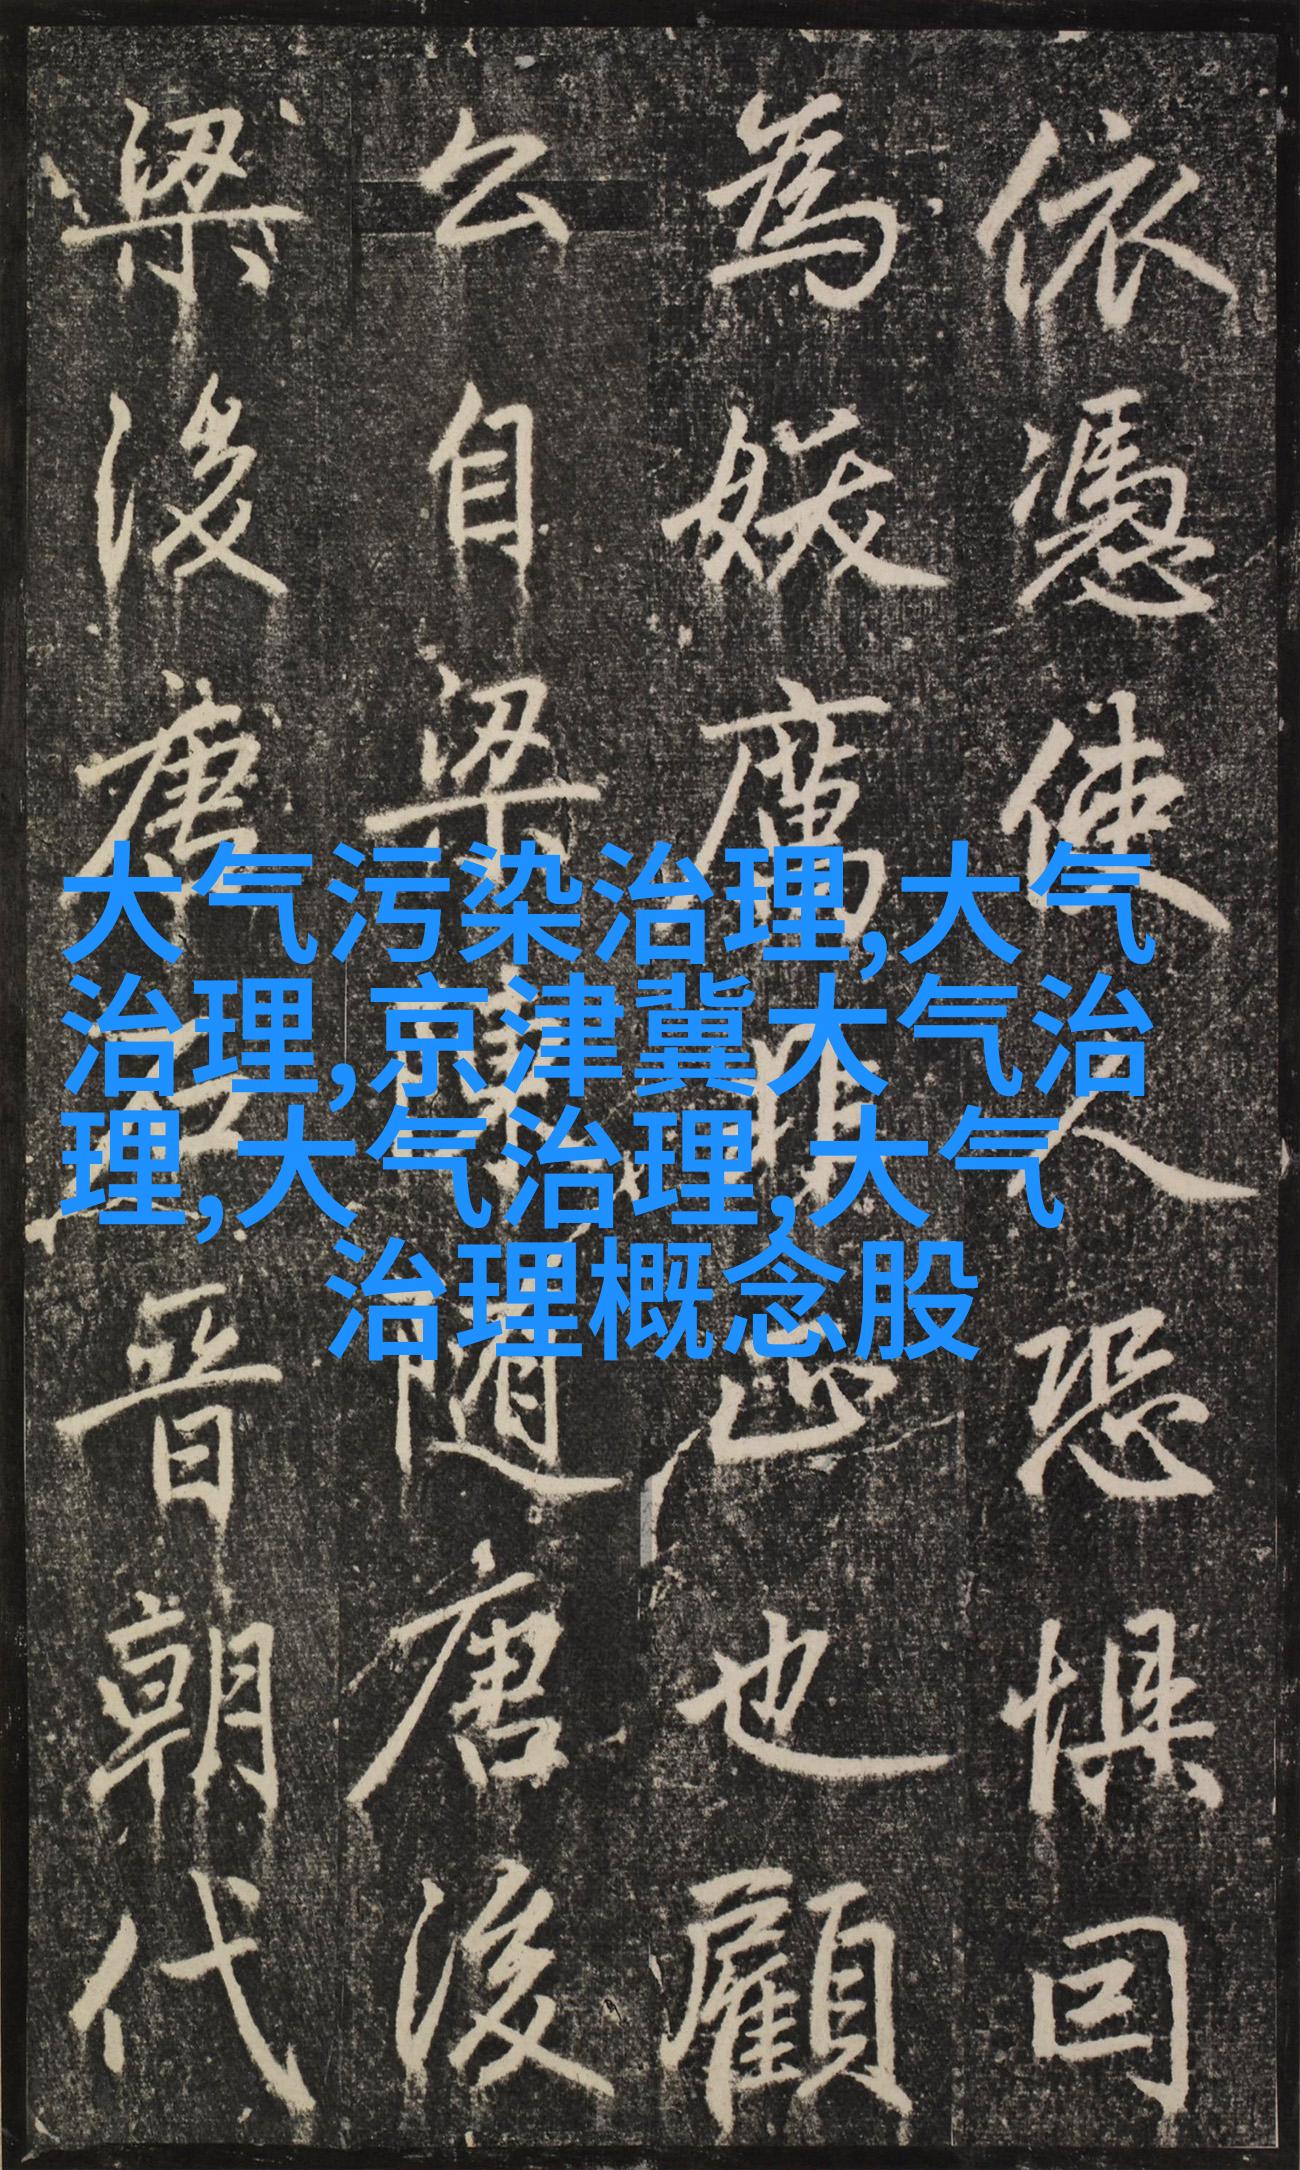 依憑使人恐惧
為妖厲非正也顧
公自梁陳隨唐後
梁後唐石晉朝代
大气污染治理,大气
治理,京津冀大气治
理,大气治理,大气
治理概念股